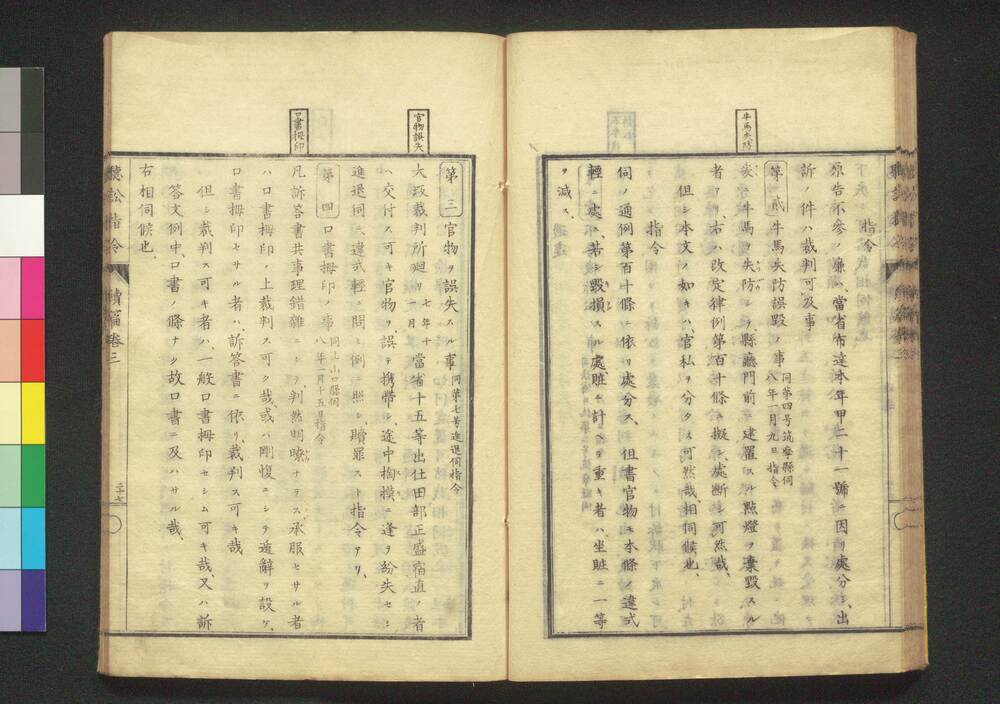 牛馬失防
指令
原告不参ノ廉ハ、當省布達本年甲二十一號ニ因リ處分シ、出
訴ノ件ハ裁判可及事
第貳 牛馬失防誤毀ノ事 同第四号筑摩縣伺 八年一月九日指令
牛馬ヲ失防シテ縣廳門前ニ建置スル點燈ヲ棄毀スル
者アリ、右ハ改定律例第百十條ニ擬シ處断シ可然哉、
但シ本文ノ如キハ、官私ヲ分タス可然哉、相伺候也、
指令
伺ノ通例第百十條ニ依リ處分ス、但書官物モ本條ノ違式
輕ニ處ス、若シ毀損スル處贓ニ計ヘテ重キ者ハ、坐贓ニ一等
ヲ減ス、
官物誤失
第三 官物ヲ誤失スル事 同第七号進退伺指令
大坂裁判所廻リ 七年十一月 當省十五等出仕田部正盛宿直ノ者
ヘ交付ス可キ官物ヲ、誤テ携帶シ、途中掏摸ニ逢ヲ紛失セシ
進退伺ニ、違式輕ニ問ヒ例ニ照シ贖罪スト指令アリ、
口書拇印
第四 口書拇印ノ事 同山口縣伺 八年一月十五日指令
凡訴答書共事理錯雜ニシテ、判然明瞭ナラス、承服セサル者
ハ口書拇印ノ上裁判ス可ク哉、或ハ剛愎ニシテ遁辭ヲ設ケ、
口書拇印セサル者ハ、訴答書ニ依リ、裁判ス可キ哉
但シ裁判ス可キ者ハ、一般口書拇印セシム可キ哉、又ハ訴
答文例中、口書ノ條ナク故口書ニ及ハサル哉、
右相伺候也、
聽訟指令 續篇卷三
三十七